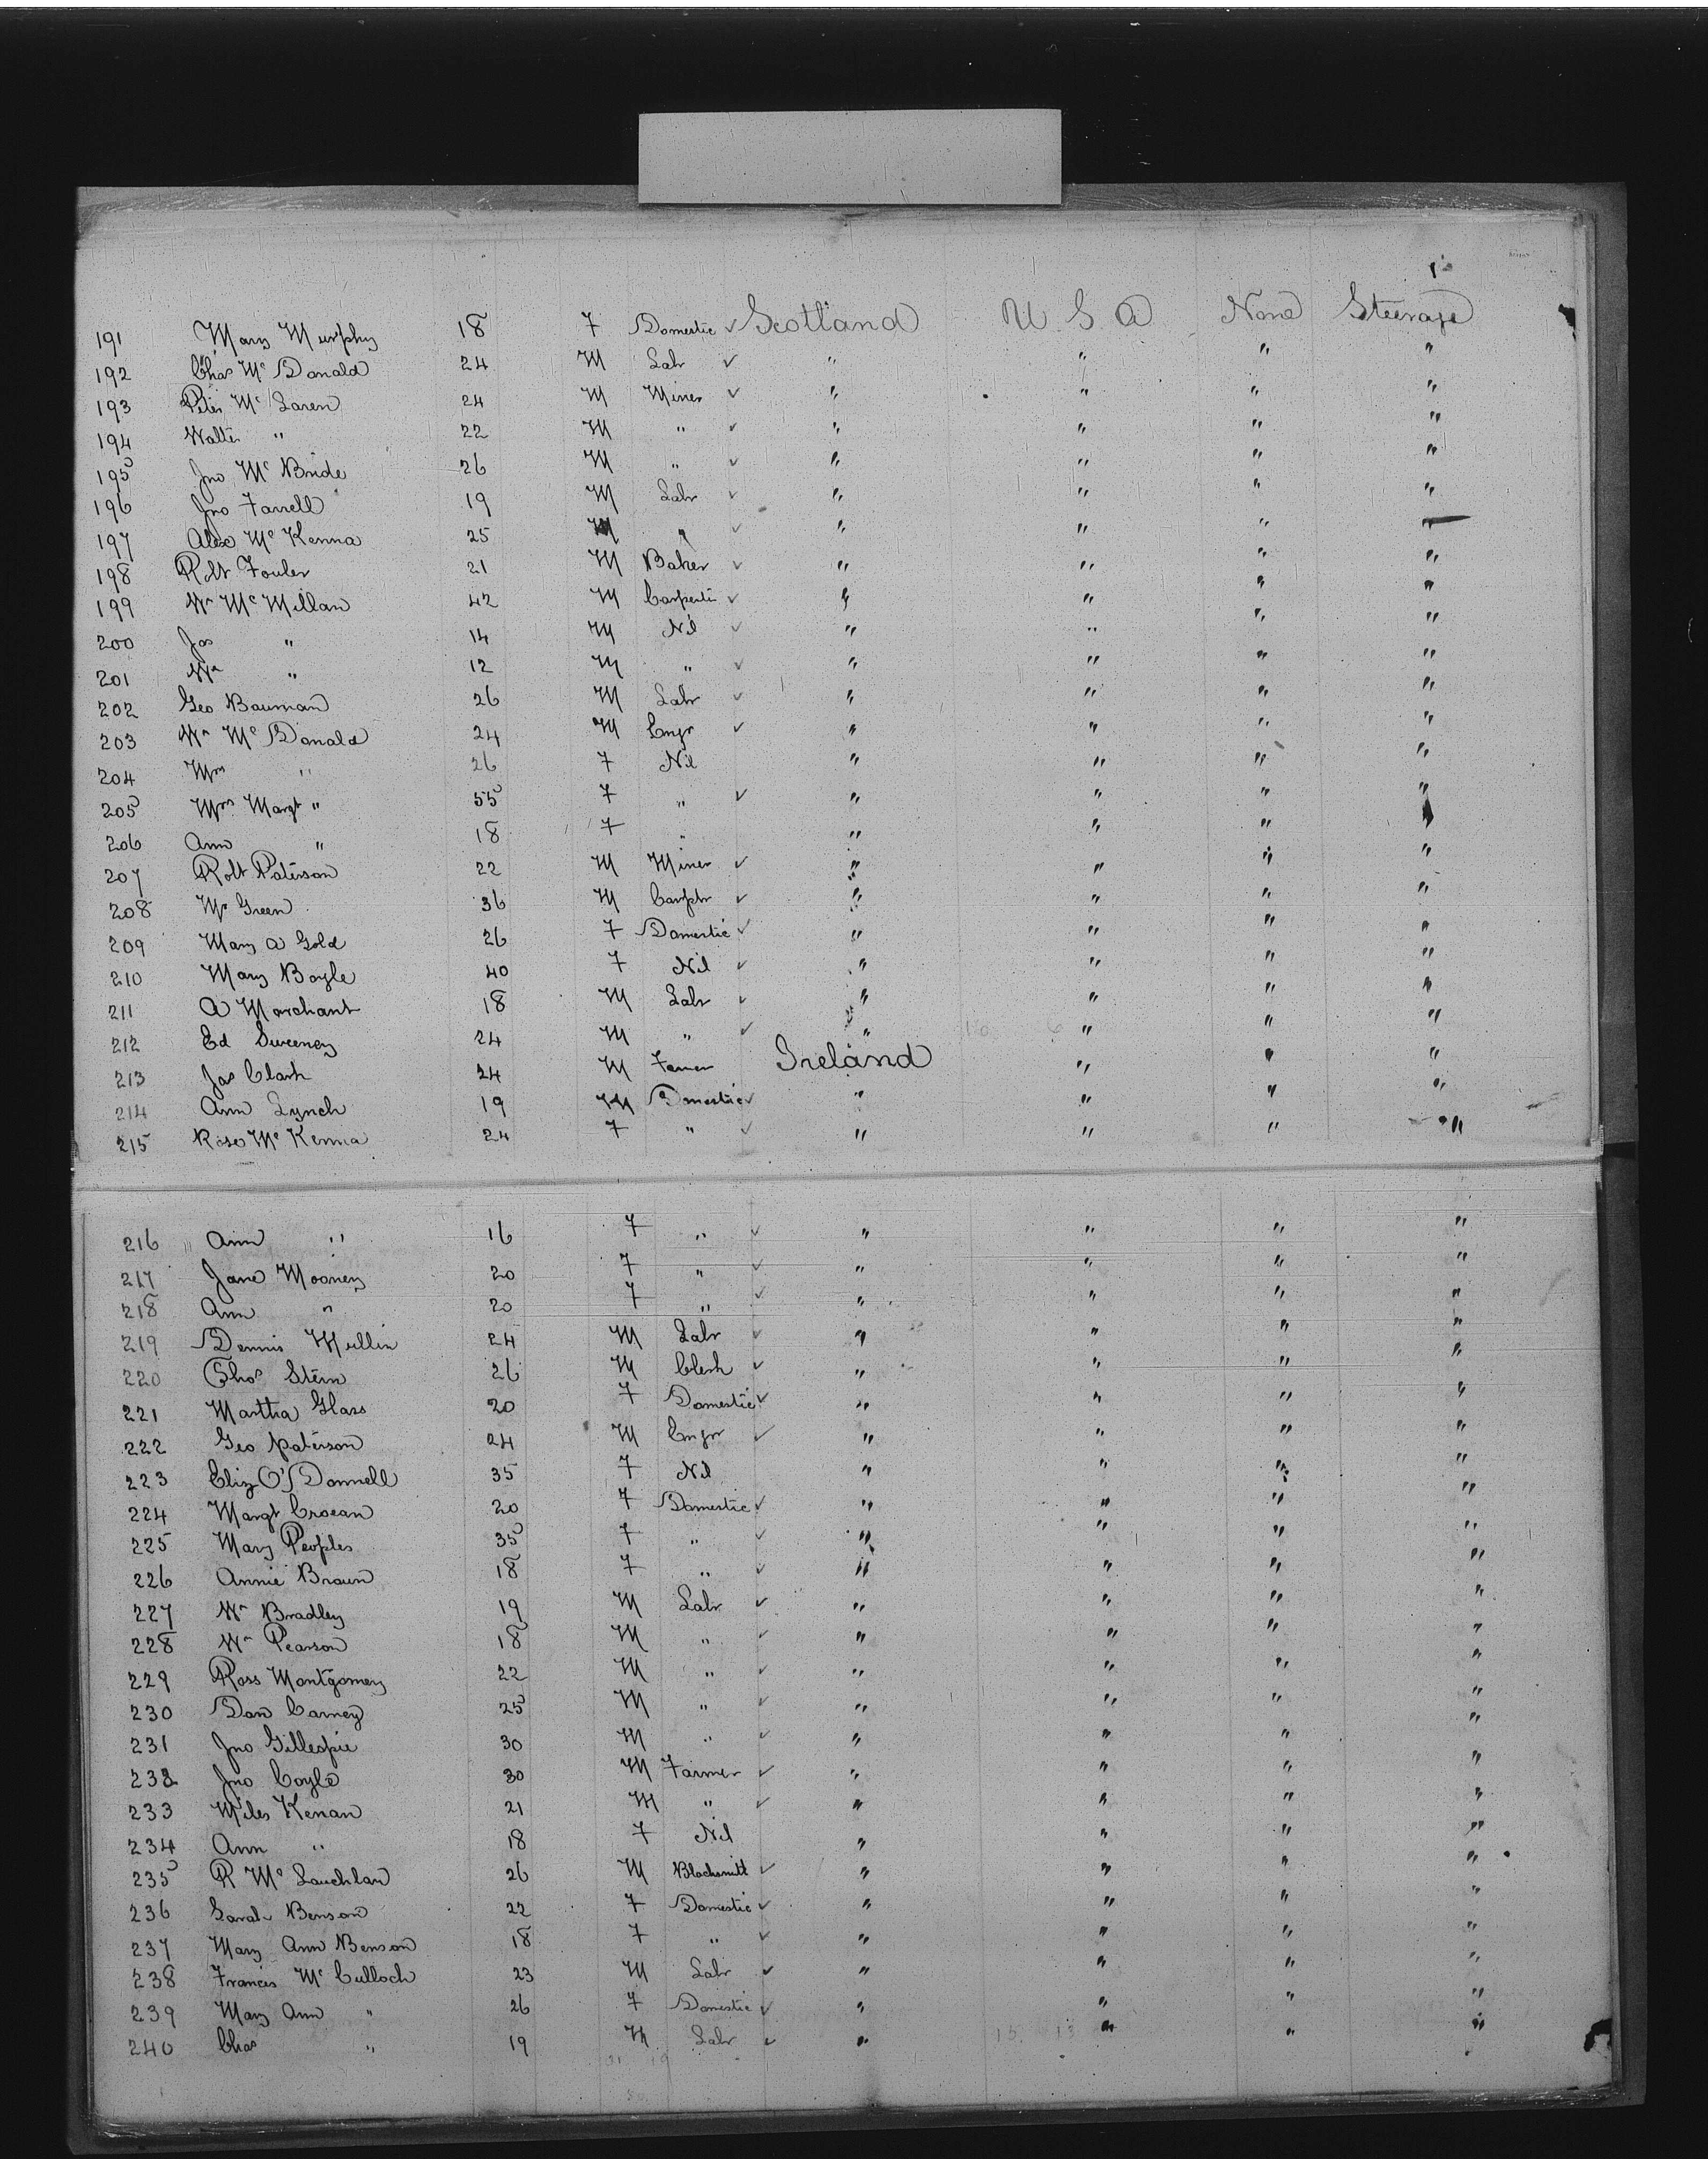 191 Mary Murphy 18 F Domestic ✓ Scotland U. S. A None Steerage
192 Chas Mc Donald 24 M Labr ✓ " " " "
193 Peter Mc Laren 24 M Miner ✓ " " " "
194 Walter " 22 M " ✓ " " " "
195 Jno Mc Bride 26 M " ✓ " " " "
196 Jno Farrell 19 M Labr ✓ " " " "
197 Alex Mc Kenna 25 M " ✓ " " " "
198 Robt Fowler 21 M Baker ✓ " " " "
199 Wm Mc Millan 42 M Carpenter ✓ " " " "
200 Jas " 14 M Nil ✓ " " " "
201 Wm " 12 M " ✓ " " " "
202 Geo Bauman 26 M Labr ✓ " " " "
203 Wm Mc Donald 24 M Engr ✓ " " " "
204 Mrs " 26 F Nil " " " "
205 Mrs Margt " 55 F " ✓ " " " "
206 Ann " 18 F " " " " "
207 Robt Paterson 22 M Miner ✓ " " " "
208 Mr Green 36 M Carptr ✓ " " " "
209 Mary A Gold 26 F Domestic ✓ " " " "
210 Mary Boyle 40 F Nil ✓ " " " "
211 A Marchant 18 M Labr ✓ " " " "
212 Ed Sweeney 24 M " ✓ " " " "
213 Jas Clark 24 M Farmer Ireland " " "
214 Ann Lynch 19 Domestic ✓ " " " "
215 Rose Mc Kenna 24 F " ✓ " " " "
216 Ann " 16 F " ✓ " " " "
217 Jane Mooney 20 F " ✓ " " " "
218 Ann " 20 F " ✓ " " " "
219 Dennis Mullin 24 M Labr ✓ " " " "
220 Thos Stern 26 M Clerk ✓ " " " "
221 Martha Glass 20 F Domestic ✓ " " " "
222 Geo Paterson 24 M Engr ✓ " " " "
223 Eliz O'Donnell 35 F Nil " " " "
224 Margt Croean 20 F Domestic ✓ " " " "
225 Mary Peoples 35 F " ✓ " " " "
226 Annie Braun 18 F " ✓ " " " "
227 Wm Bradley 19 M Labr ✓ " " " "
228 Wm Pearson 18 M " ✓ " " " "
229 Ross Montgomery 22 M " ✓ " " " "
230 Dan Carney 25 M " ✓ " " " "
231 Jno Gillespie 30 M " ✓ " " " "
232 Jno Coyle 30 M Farmer ✓ " " " "
233 Miles Kenan 21 M " ✓ " " " "
234 Ann " 18 F Nil " " " "
235 R Mc Lauchlan 26 M Blacksmith ✓ " " " "
236 Sarah Benson 22 F Domestic ✓ " " " "
237 Mary Ann Benson 18 F " ✓ " " " "
238 Francis Mc Culloch 23 M Labr ✓ " " " "
239 Mary Ann " 26 F Domestic ✓ " " " "
240 Chas " 19 M Labr ✓ " " " "